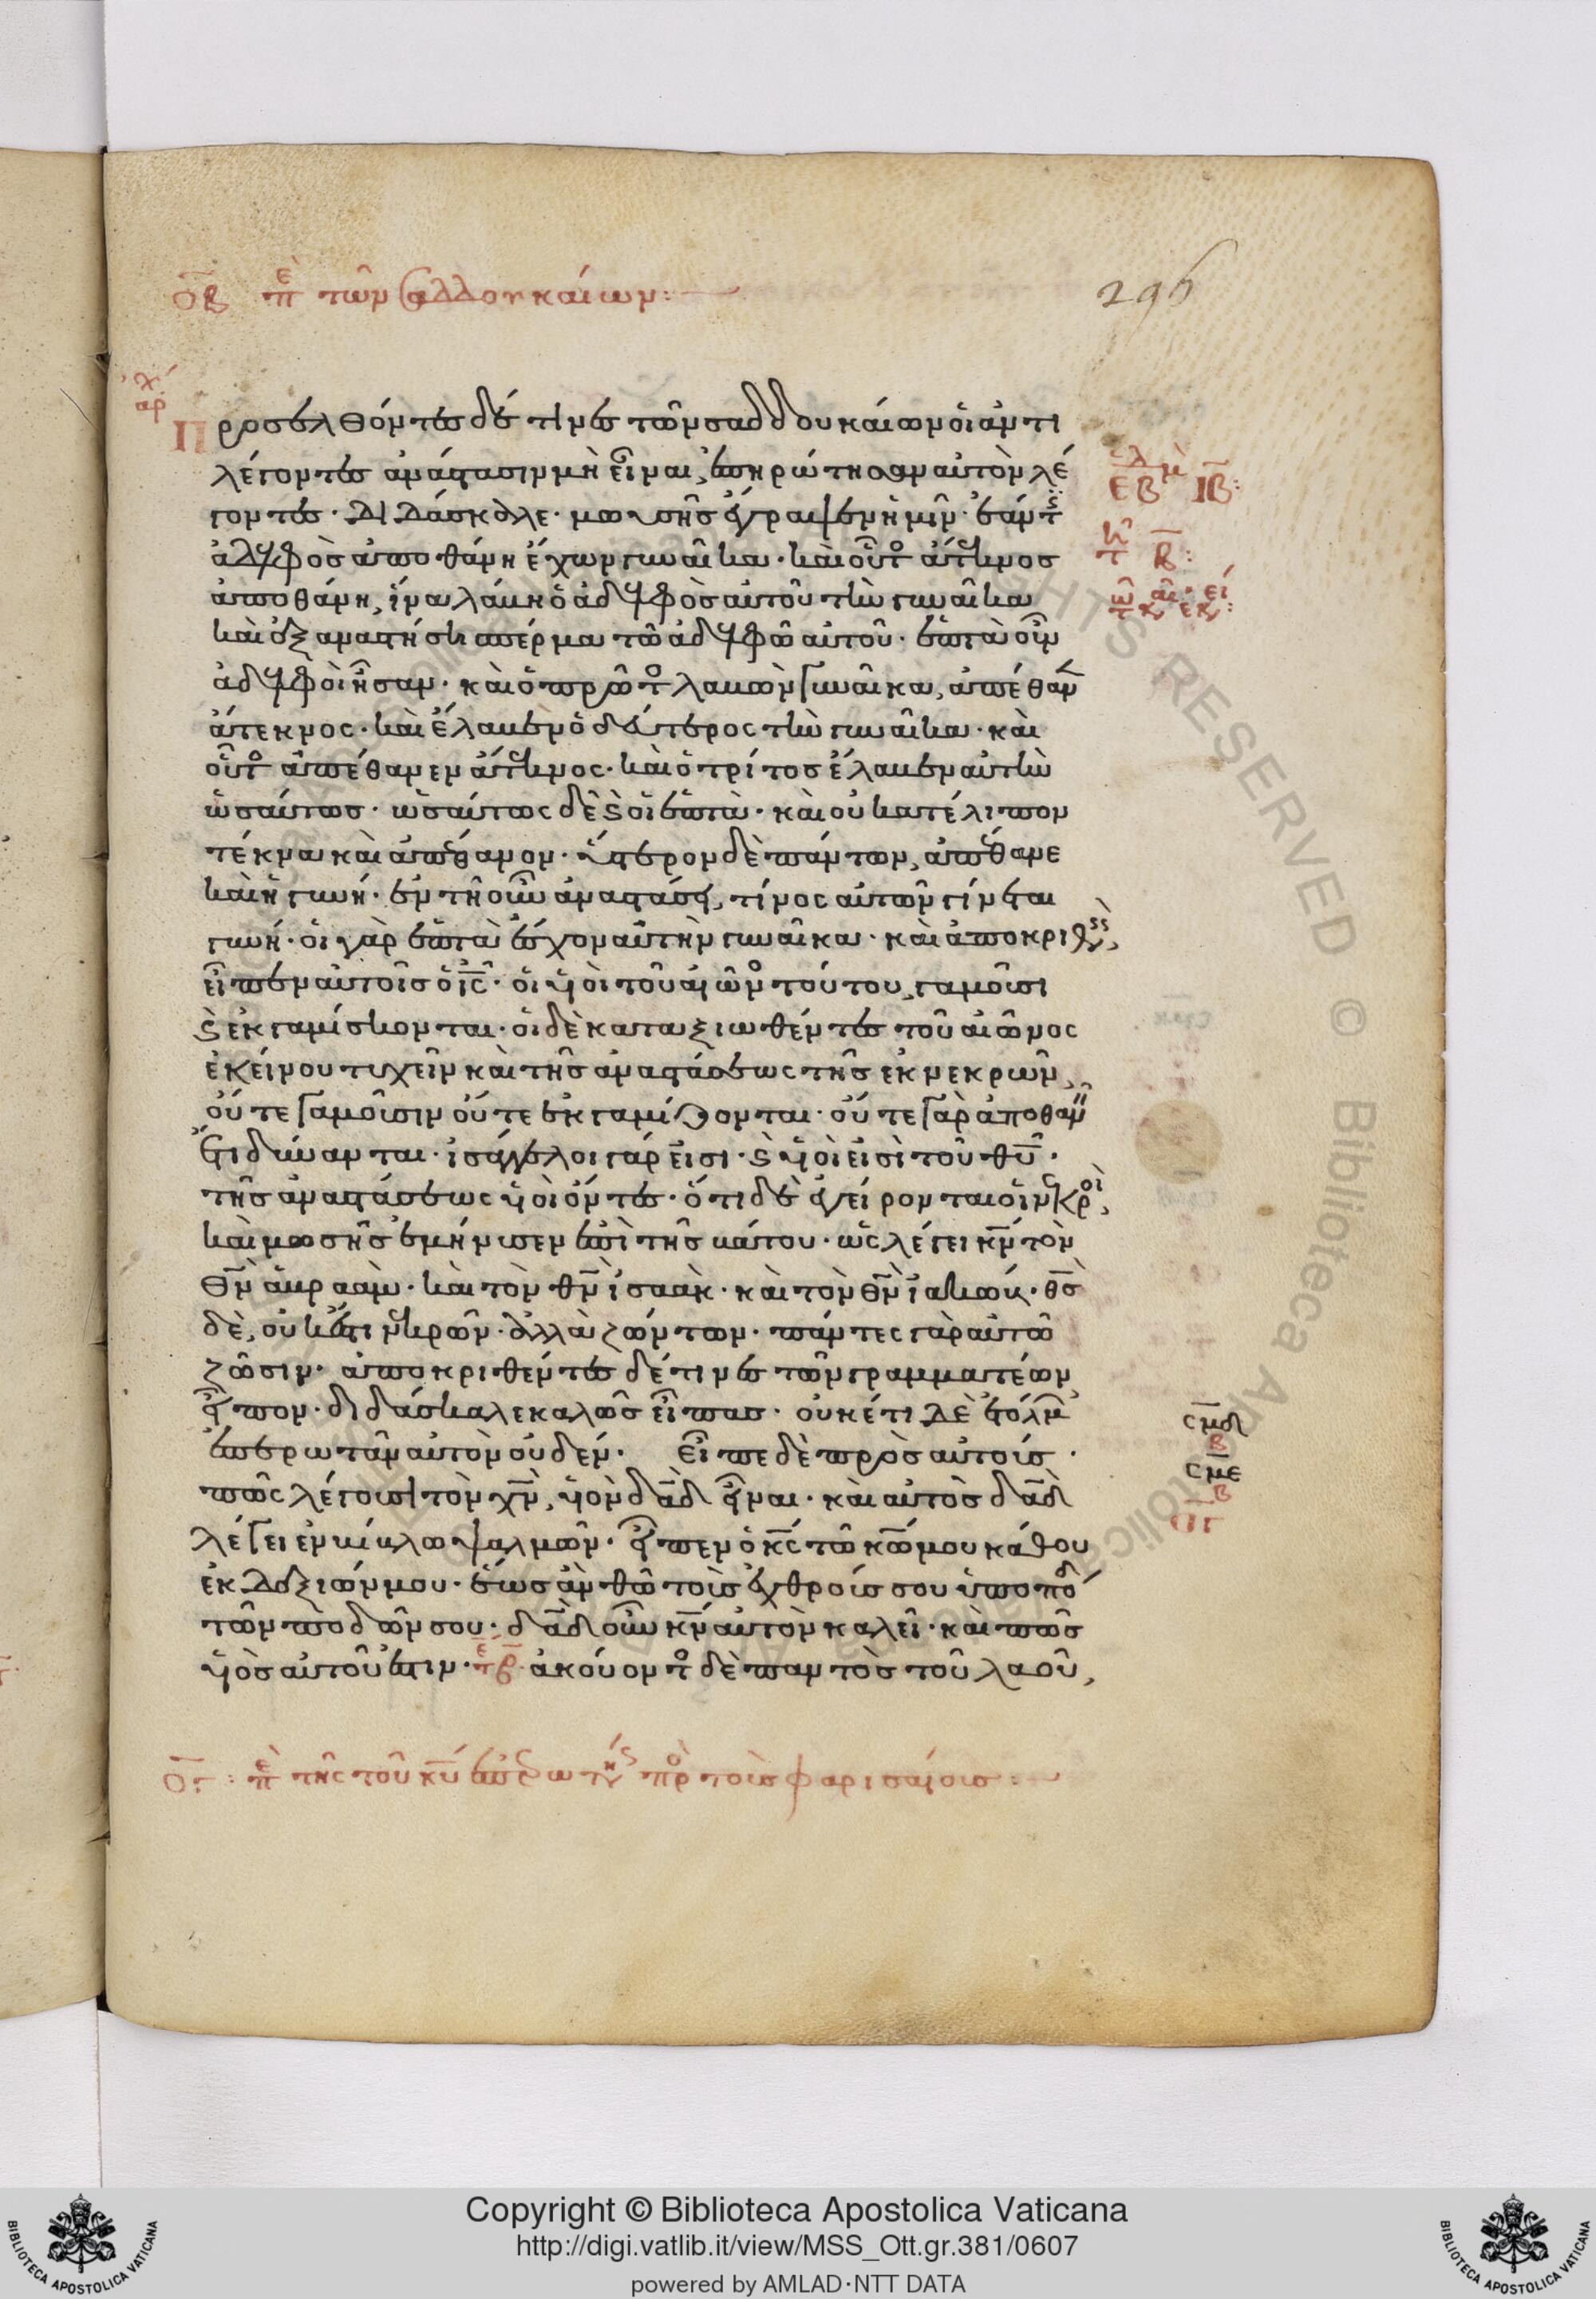 οβ πε τῶν σαδδουκαίων:
296
ἀρχ
Προσελθόντες δέ τινες τῶν σαδδουκαίων οἱ ἀντι
λέγοντες ἀνάστασιν μὴ εἶναι, ἐπηρώτησαν αὐτὸν λέ
γοντες· διδάσκαλε· μωυσῆς ἔγραψεν ἡμῖν· ἐάν τ
ἀδελφὸς ἀποθάνη ἔχων γυναῖκα· καὶ οὗτος ἄτεκνος
ἀποθάνη, ἵνα λάβη ὁ ἀδελφὸς αὐτοῦ τὴν γυναῖκα
καὶ ἐξαναστήσει σπέρμα τῶ ἀδελφῶ αὐτοῦ· ἑπτὰ οὖν
ἀδελφοὶ ἦσαν· καὶ ὁ πρῶτος λαβὼν γυναῖκα, ἀπέθαν
ἄτεκνος· καὶ ἔλαβεν ὁ δεύτερος τὴν γυναῖκα· καὶ
οὗτος ἀπέθανεν ἄτεκνος· καὶ ὁ τρίτος ἔλαβεν αὐτὴν
ὡσαύτως· ὡσαύτως δὲ καὶ οἱ ἑπτὰ· καὶ οὐ κατέλιπον
τέκνα καὶ ἀπέθανον· ὕστερον δὲ πάντων, ἀπέθανε
καὶ ἡ γυνή· ἐν τῆ οὖν ἀναστάσει, τίνος αὐτῶν γίνεται
γυνή· οἱ γὰρ ἑπτὰ ἔσχον αὐτὴν γυναῖκα· καὶ ἀποκριθεὶς,
εἶπεν αὐτοῖς ὁ ις· οἱ υἱοὶ τοῦ αἰῶνος τούτου, γαμοῦσι
καὶ ἐκγαμίσκονται· οἱ δὲ καταξιωθέντες τοῦ αἰῶνος
ἐκείνου τυχεῖν καὶ τῆς ἀναστάσεως τῆς ἐκ νεκρῶν,
οὔτε γαμοῦσιν οὔτε ἐκγαμίζονται· οὔτε γὰρ ἀποθαν
ἔτι δύνανται· ἰσάγγελοι γάρ εἰσι· καὶ υἱοὶ εἰσὶ τοῦ θυ·
τῆς ἀναστάσεως υἱοὶ ὄντες· ὅτι δὲ ἐγείρονται οἱ νεκροὶ,
καὶ μωσῆς ἐμήνυσεν ἐπὶ τῆς βάτου· ὡς λέγει κν τὸν
θν ἀβραὰμ· καὶ τὸν θν ἰσαὰκ· καὶ τὸν θν ἰακώβ· θς
δὲ, οὐκ ἔστι νεκρῶν· ἀλλὰ ζώντων· πάντες γὰρ αὐτῶ
ζῶσιν· ἀποκριθέντες δέ τινες τῶν γραμματέων
εἶπον· διδάσκαλε καλῶς εἶπας· οὐκέτι δὲ ἐτόλμ
ἐπερωτᾶν αὐτὸν οὐδέν· εἶπε δὲ πρὸς αὐτούς·
πῶς λέγουσι τὸν χν, υἱὸν δαδ εἶναι· καὶ αὐτὸς δαδ
λέγει ἐν βίβλω ψαλμῶν· εἶπεν ὁ κς τῶ κω μου κάθου
ἐκ δεξιῶν μου· ἕως ἂν θῶ τοὺς ἐχθρούς σου ὑποπό
τῶν ποδῶν σου· δαδ οὖν κν αὐτὸν καλεῖ· καὶ πῶς
υἱὸς αὐτοῦ ἐστιν· ἀκούοντος δὲ παντὸς τοῦ λαοῦ,
ΙΒ:
Β:
σμδ
β
σμε
β
ογ
ογ: πε τῆς τοῦ κυ ἐπερωτήσ πρὸ τοὺς φαρισαίους:
Copyright © Biblioteca Apostolica Vaticana
http://digi.vatlib.it/view/MSS_Ott.gr.381/0607
powered by AMLAD·NTT DATA
BIBLIOTECA APOSTOLICA VATICANA
BIBLIOTECA APOSTOLICA VATICANA